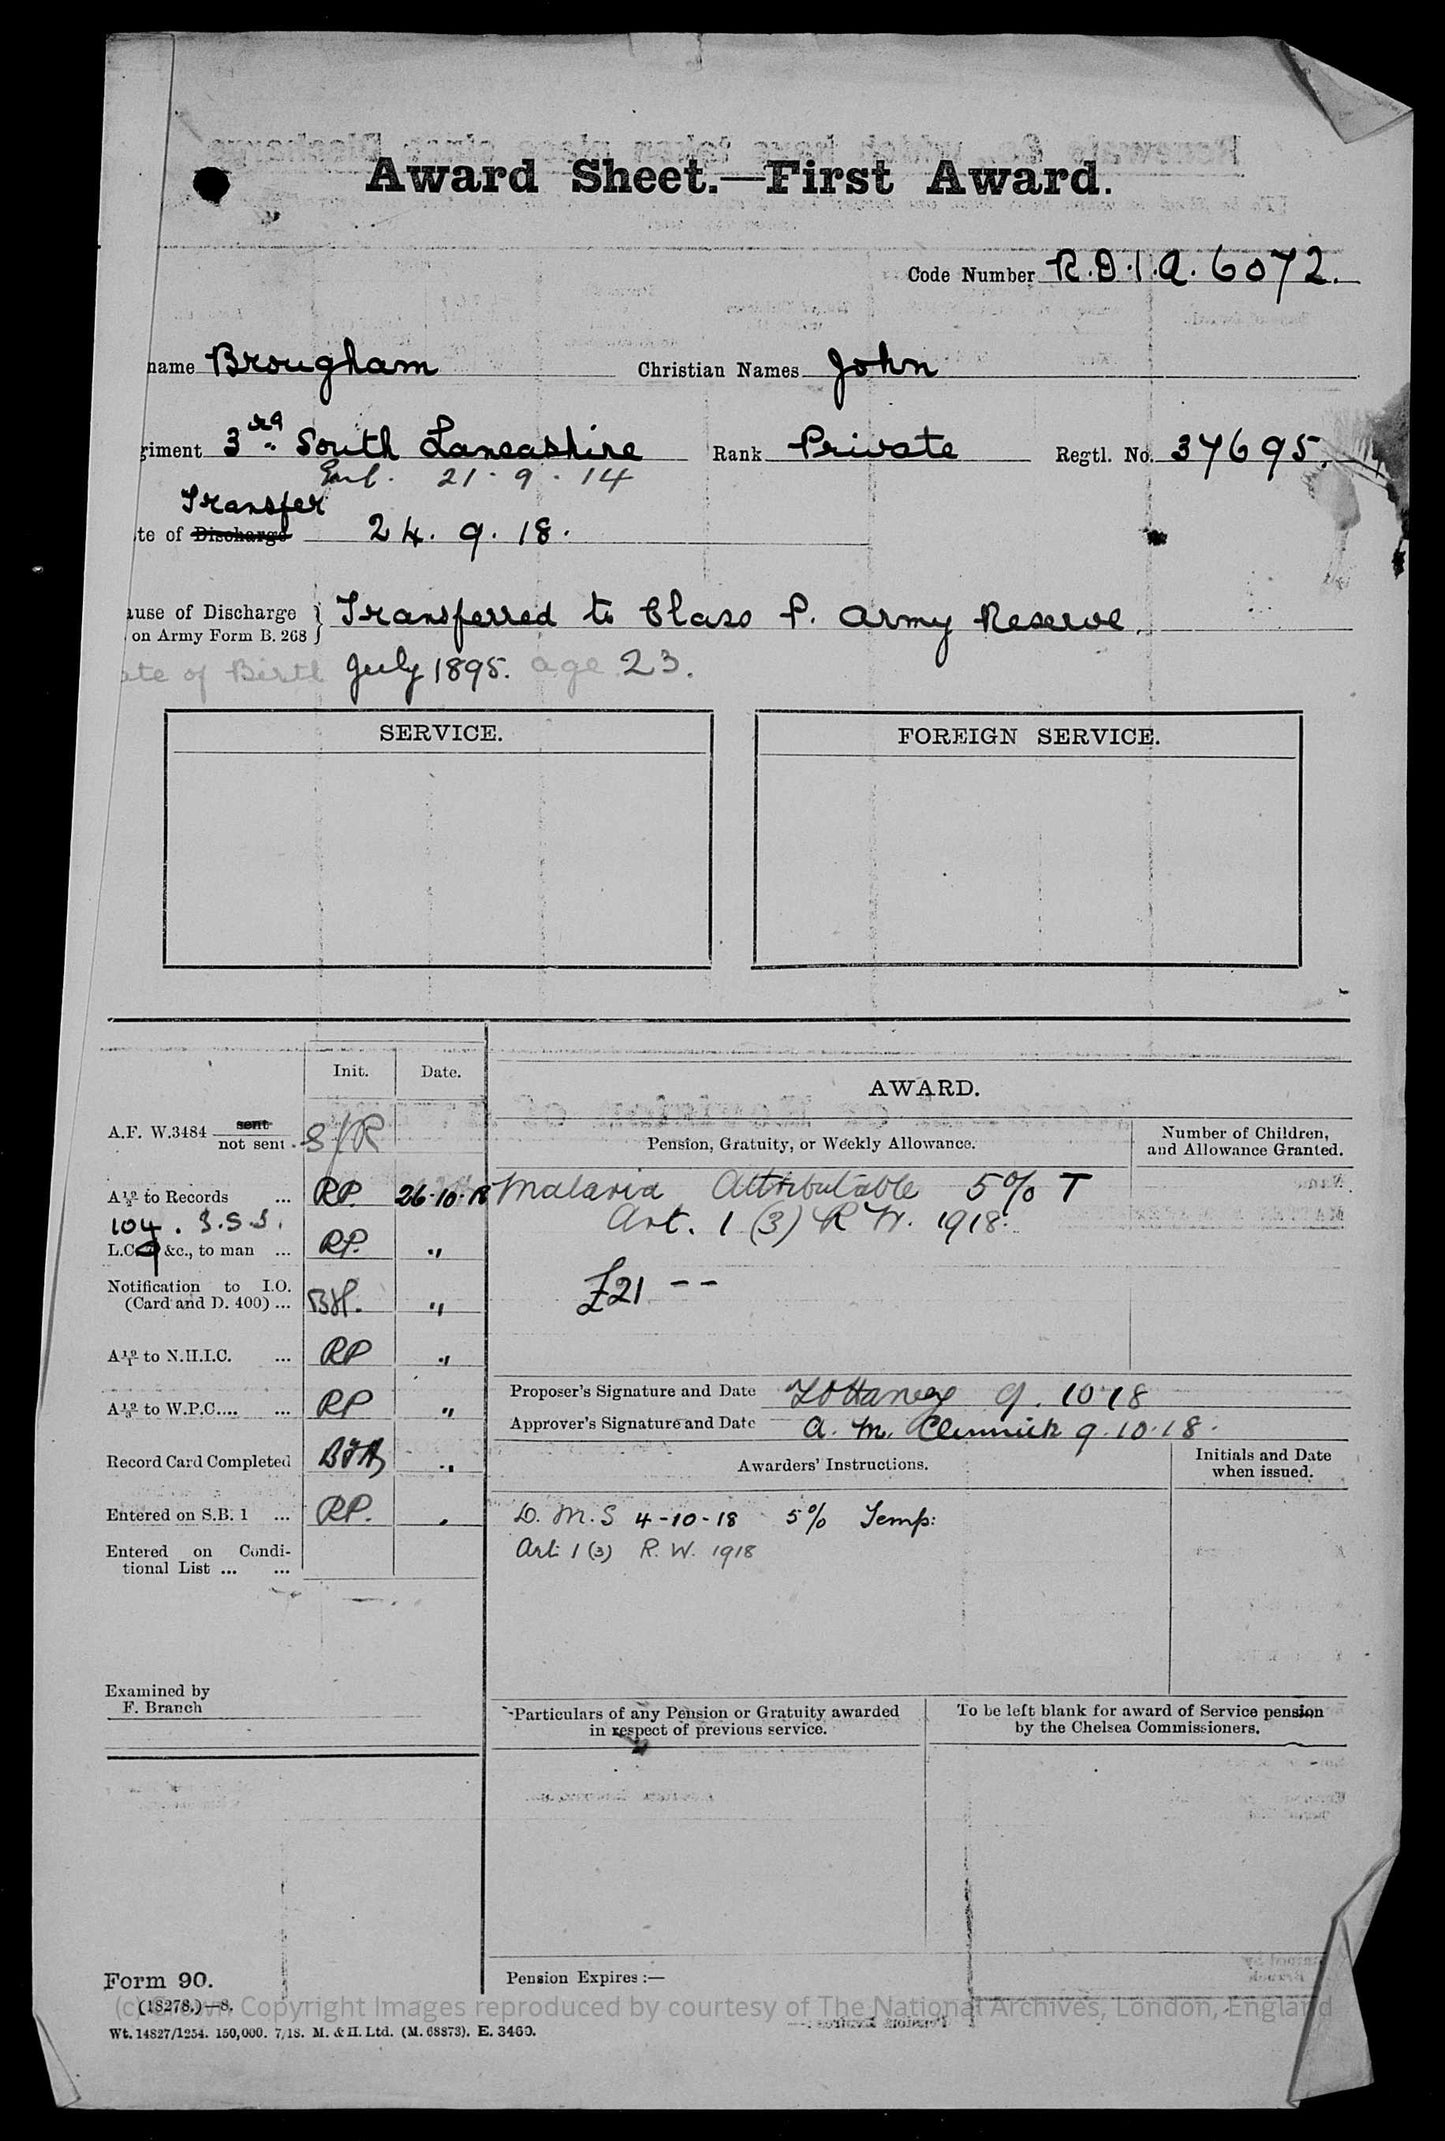 Award Sheet.—First Award.
Code Number R.D.1.A. 6072.
name Brougham Christian Names John
giment 3rd South Lancashire Rank Private Regtl. No. 37695.
Enl. 21.9.14
Transfer
te of Discharge 24.9.18.
ause of Discharge
on Army Form B. 268 } Transferred to Class P. Army Reserve.
ate of Birth July 1895. age 23.
SERVICE. FOREIGN SERVICE.
Init. Date.
AWARD.
A.F. W.3484 sent
not sent S/R
Pension, Gratuity, or Weekly Allowance. Number of Children,
and Allowance Granted.
to Records ... RP. 26.10.18 Malaria Attributable 5% T
104. Art. 1 (3) R W. 1918.
&c., to man ... RP. "
Notification to I.O.
(Card and D. 400) ... BH. " £21 - -
to N.H.I.C. ... RP "
Proposer's Signature and Date 9.10.18
to W.P.C.... ... RP "
Approver's Signature and Date A. M. 9.10.18.
Record Card Completed "
Awarders' Instructions. Initials and Date
when issued.
Entered on S.B. 1 ... RP. "
D.M.S 4-10-18 5% Temp:
Art 1 (3) R.W. 1918
Entered on Condi-
tional List ... ...
Examined by
F. Branch
Particulars of any Pension or Gratuity awarded
in respect of previous service.
To be left blank for award of Service pension
by the Chelsea Commissioners.
Form 90. Pension Expires :—
(18278.)—8.
(c) Crown Copyright Images reproduced by courtesy of The National Archives, London, England
Wt. 14827/1254. 150,000. 7/18. M. & H. Ltd. (M. 68873). E. 3460.